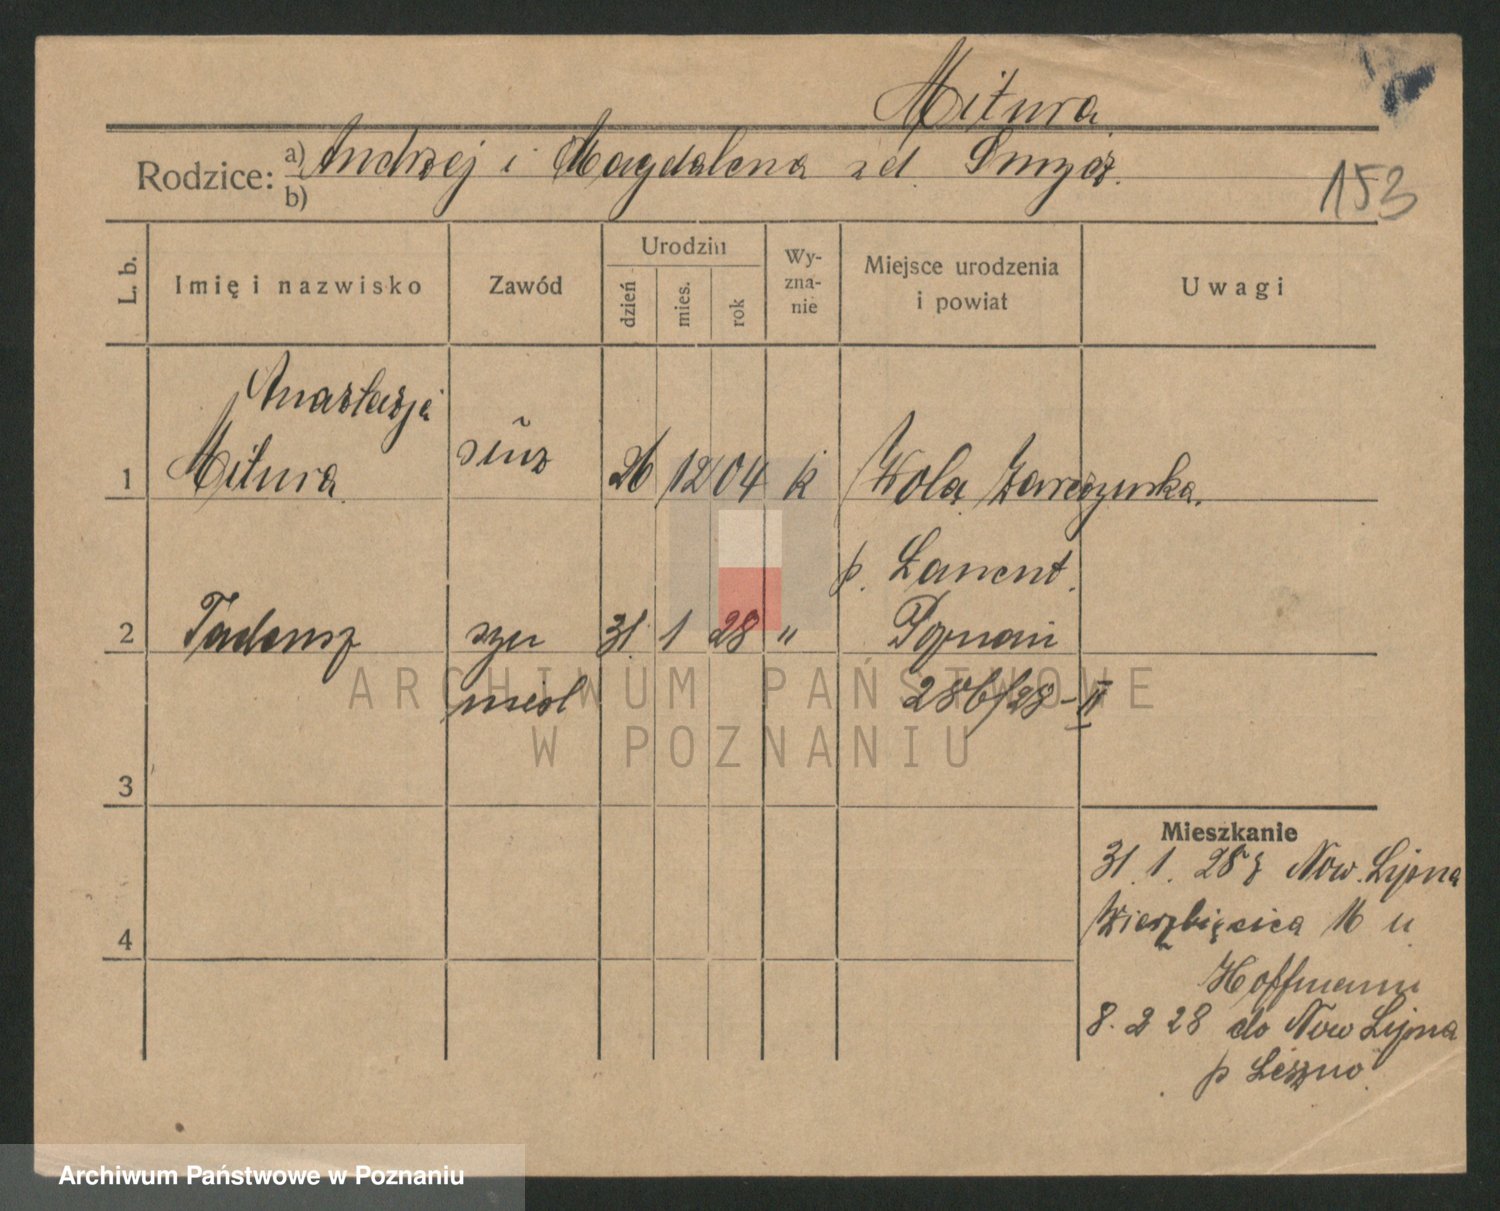 Mitura
Rodzice: a) Andrzej i Magdalena z d.
b)
153
L. b.
Imię i nazwisko
Zawód
Urodzin
dzień
mies.
rok
Wy-
zna-
nie
Miejsce urodzenia
i powiat
Uwagi
Anastazja
1 Mitura służ 26 12 04 k Wola Zarczycka
p. Łancut.
2 Tadeusz 31. 1 28 " Poznań
286/28-II
3
4
Mieszkanie
31. 1. 28 z Now. Lipna
Wierzbięcica 16 u
Hoffmann
8. 2 28 do Now Lipna
p Leszno.
ARCHIWUM PAŃSTWOWE
W POZNANIU
Archiwum Państwowe w Poznaniu